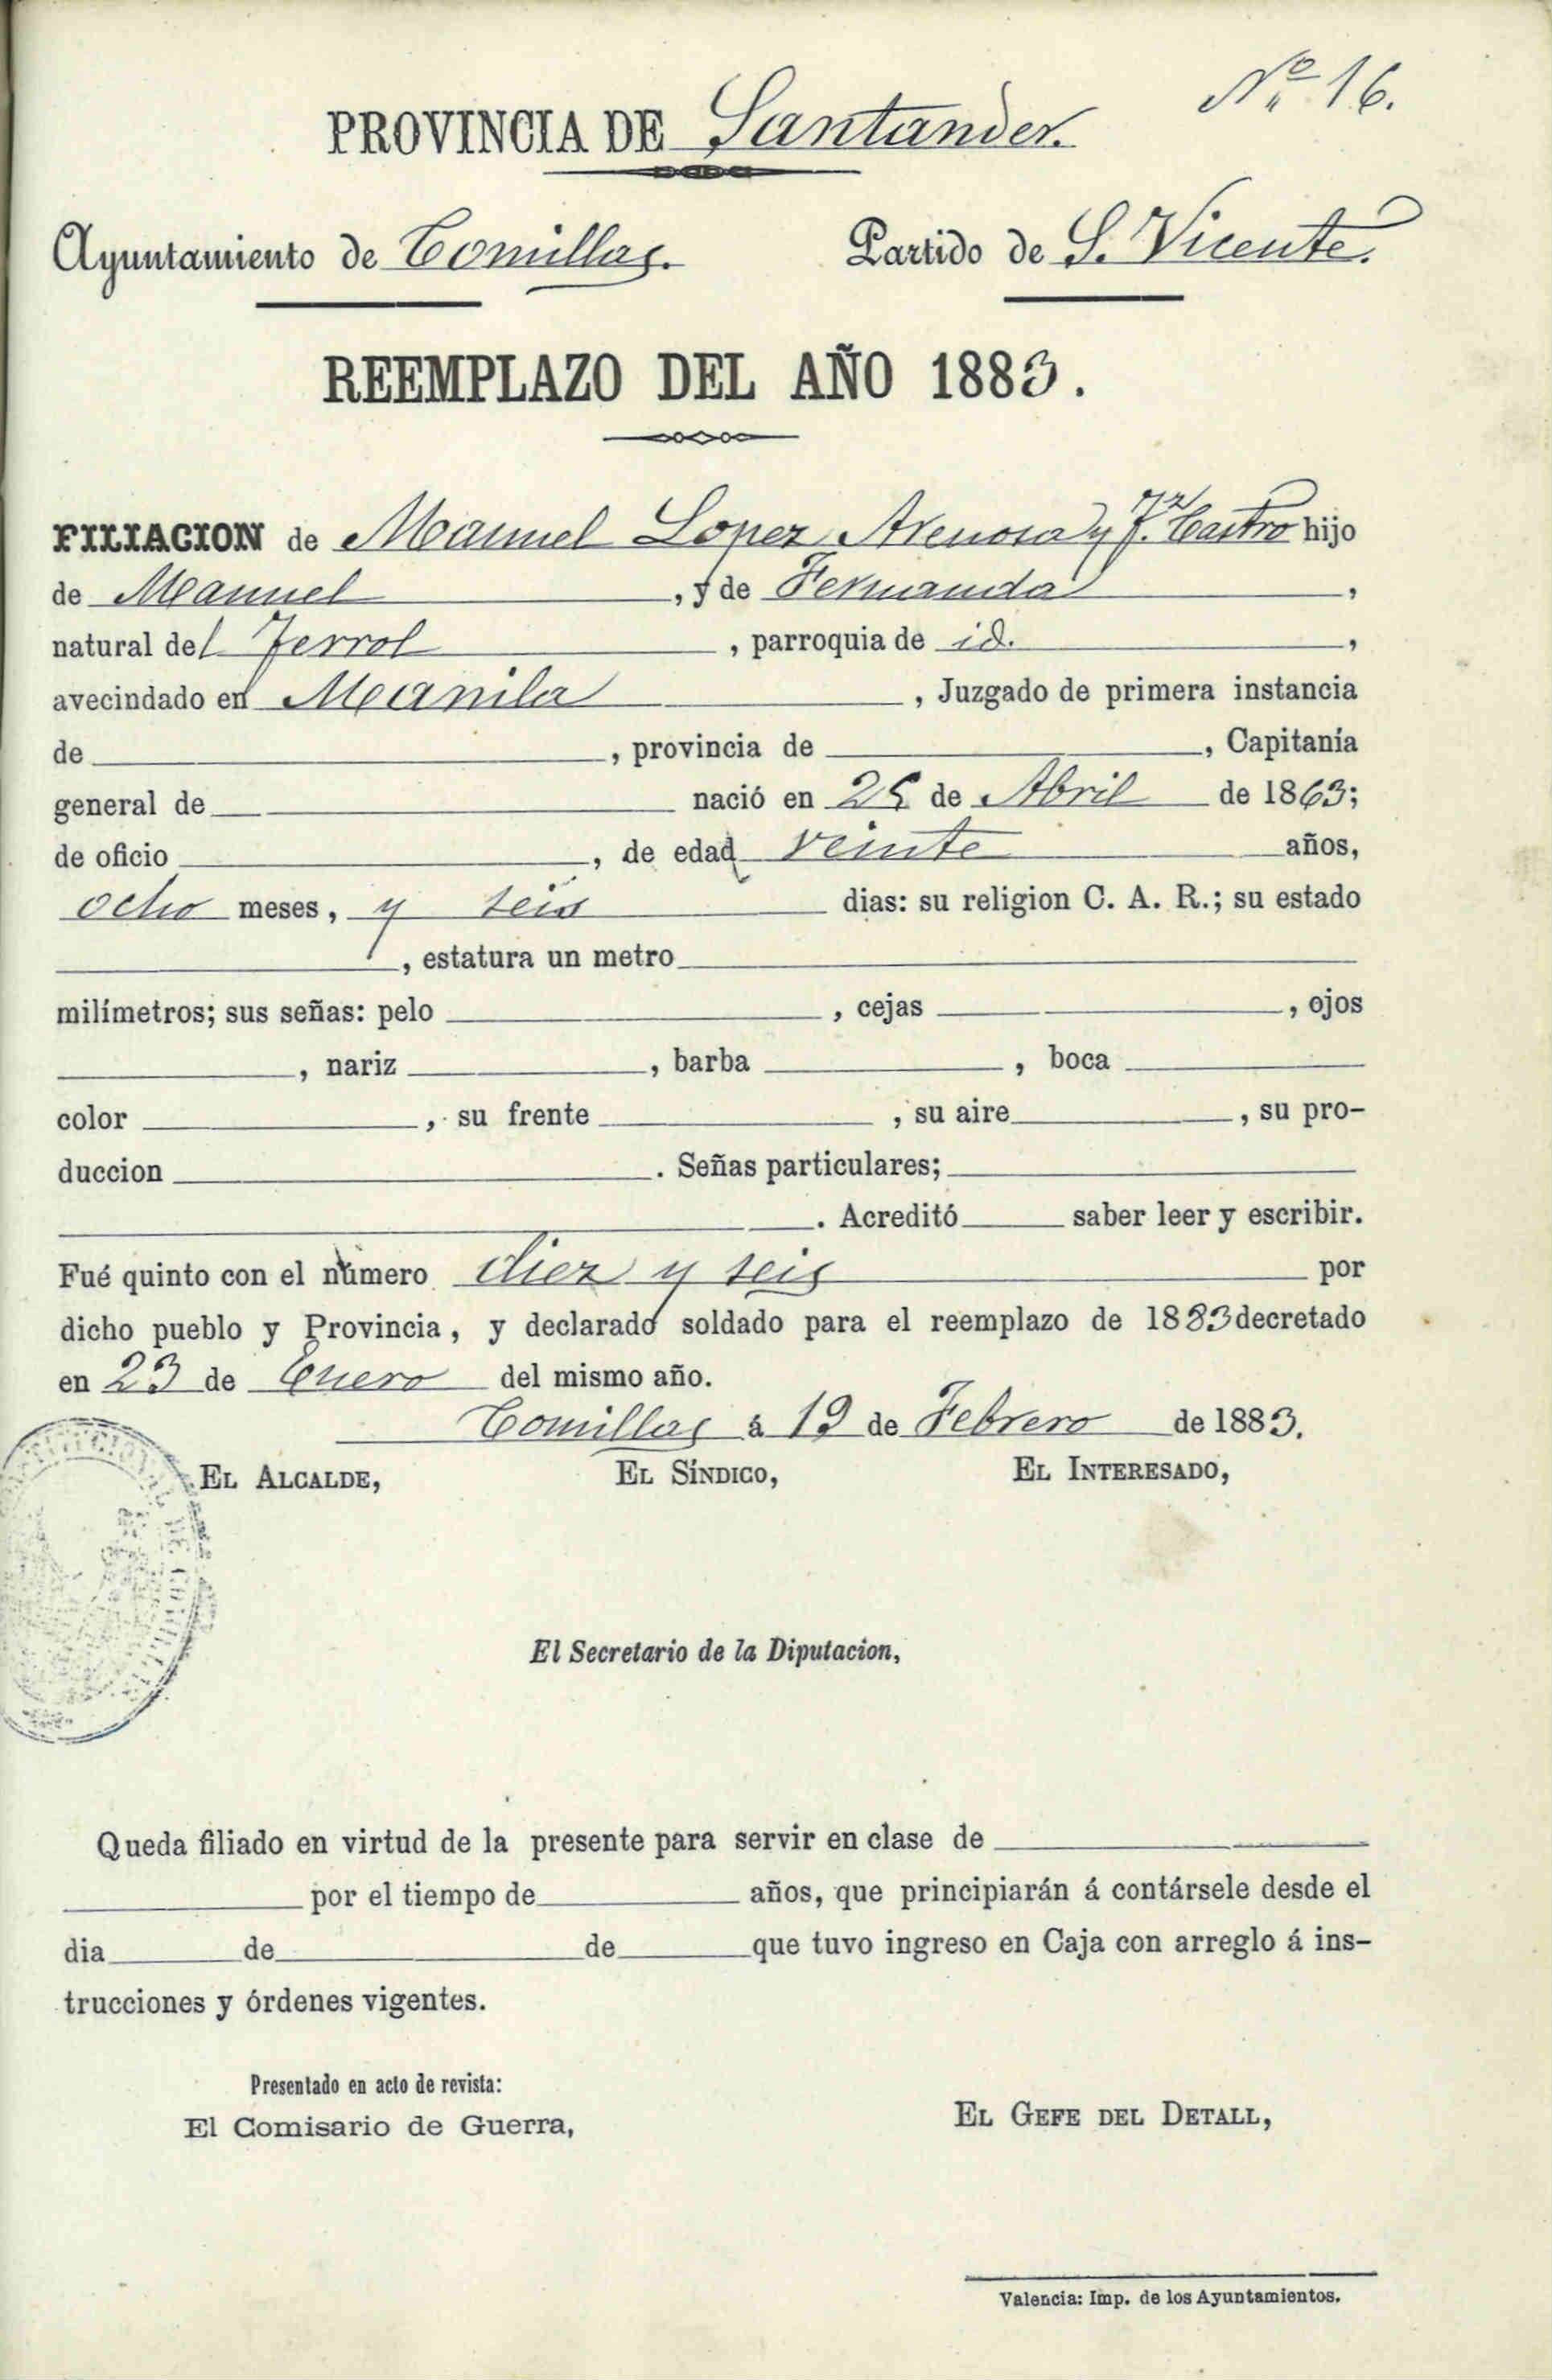 Nº 16.
PROVINCIA DE Santander.
Ayuntamiento de Comillas. Partido de S. Vicente.
REEMPLAZO DEL AÑO 1883.
FILIACION de Manuel Lopez Arenosa y F. Castro hijo
de Manuel, y de Fernanda,
natural del Ferrol, parroquia de id.,
avecindado en Manila, Juzgado de primera instancia
de , provincia de , Capitanía
general de nació en 25 de Abril de 1863;
de oficio , de edad veinte años,
ocho meses, y seis dias: su religion C. A. R.; su estado
, estatura un metro
milímetros; sus señas: pelo , cejas , ojos
, nariz , barba , boca
color , su frente , su aire , su pro-
duccion . Señas particulares;
. Acreditó saber leer y escribir.
Fué quinto con el número diez y seis por
dicho pueblo y Provincia, y declarado soldado para el reemplazo de 1883 decretado
en 23 de Enero del mismo año.
Comillas á 19 de Febrero de 1883.
EL ALCALDE, EL SÍNDICO, EL INTERESADO,
El Secretario de la Diputacion,
Queda filiado en virtud de la presente para servir en clase de
por el tiempo de años, que principiarán á contársele desde el
dia de de que tuvo ingreso en Caja con arreglo á ins-
trucciones y órdenes vigentes.
Presentado en acto de revista:
El Comisario de Guerra,
EL GEFE DEL DETALL,
Valencia: Imp. de los Ayuntamientos.